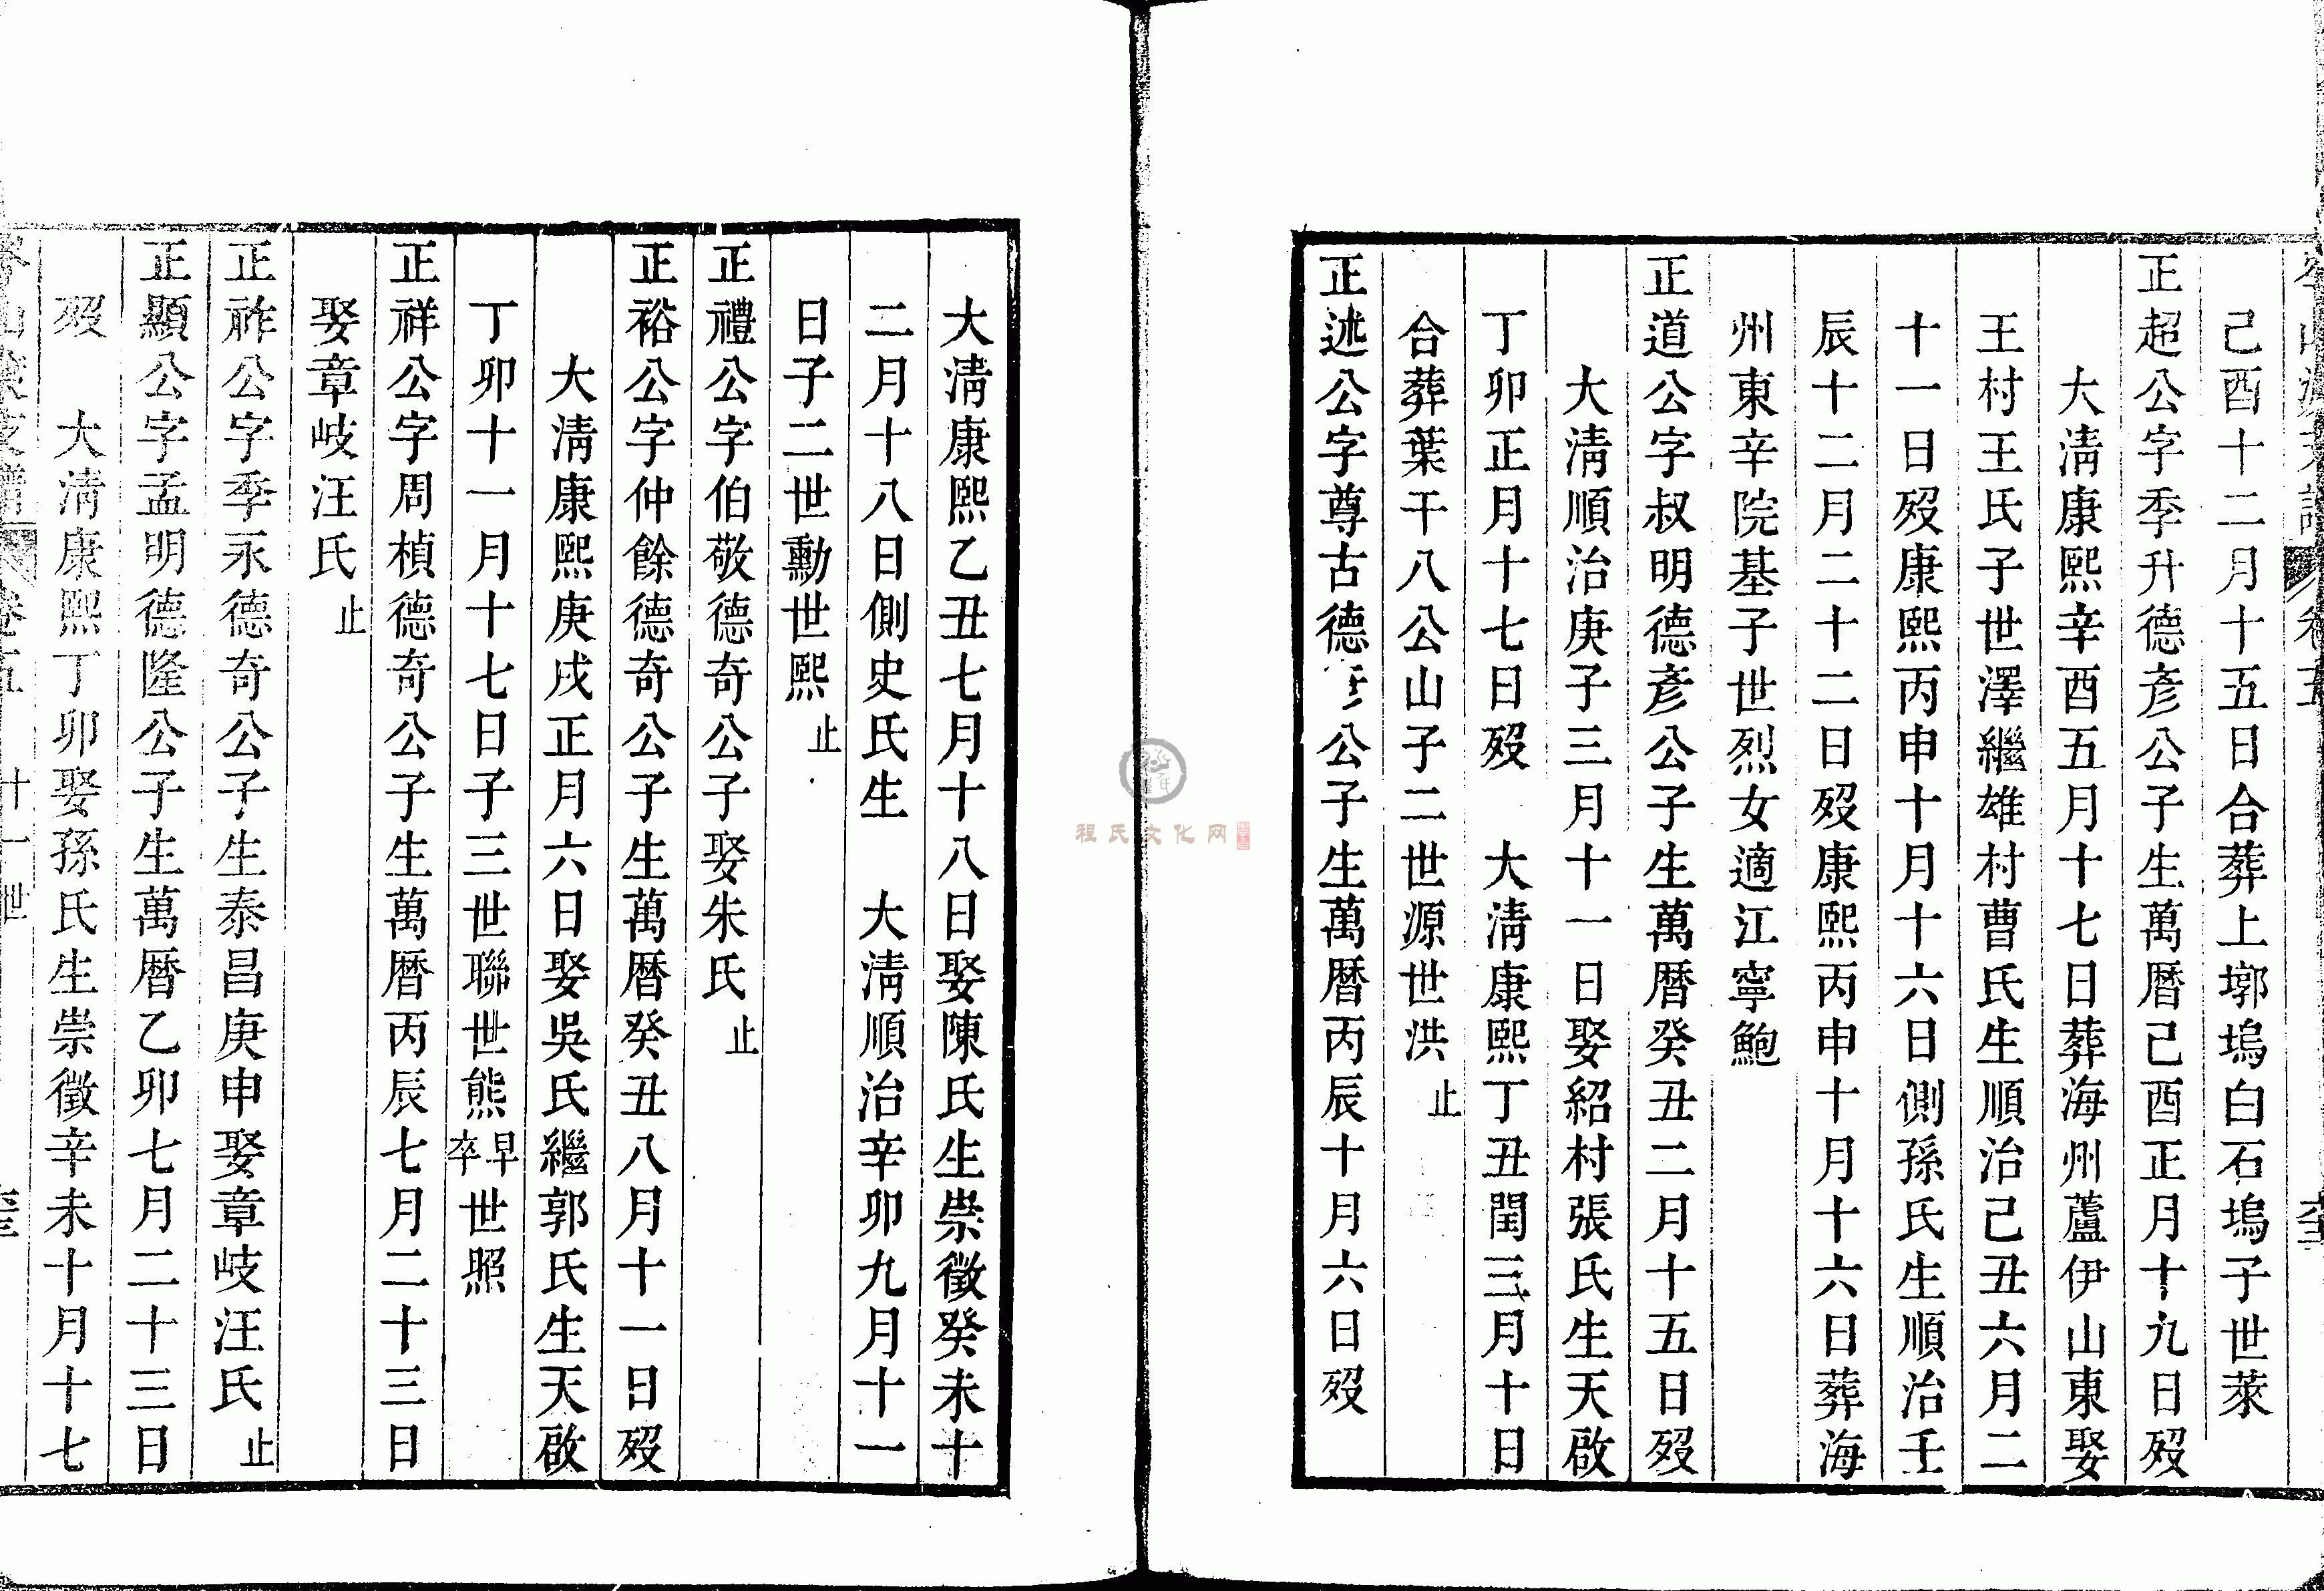 己酉十二月十五日合葬上墎塢白石塢子世萊
正超公字季升德彥公子生萬曆己酉正月十九日歿
大淸康熙辛酉五月十七日葬海州蘆伊山東娶
王村王氏子世澤繼雄村曹氏生順治己丑六月二
十一日歿康熙丙申十月十六日側孫氏生順治壬
辰十二月二十二日歿康熙丙申十月十六日葬海
州東辛院基子世烈女適江寧鮑
正道公字叔明德彥公子生萬曆癸丑二月十五日歿
大淸順治庚子三月十一日娶紹村張氏生天啟
丁卯正月十七日歿 大淸康熙丁丑閏三月十日
合葬葉干八公山子二世源世洪 止
正述公字尊古德公子生萬曆丙辰十月六日歿
大淸康熙乙丑七月十八日娶陳氏生崇徵癸未十
二月十八日側史氏生 大淸順治辛卯九月十一
日子二世勳世熙 止
正禮公字伯敬德奇公子娶朱氏 止
正裕公字仲餘德奇公子生萬曆癸丑八月十一日歿
大淸康熙庚戌正月六日娶吳氏繼郭氏生天啟
丁卯十一月十七日子三世聯世熊早卒世照
正祥公字周楨德奇公子生萬曆丙辰七月二十三日
娶章岐汪氏 止
正祚公字季永德奇公子生泰昌庚申娶章岐汪氏 止
正顯公字孟明德隆公子生萬曆乙卯七月二十三日
歿 大淸康熙丁卯娶孫氏生崇徵辛未十月十七
山 支譜 卷五 十一世
程氏文化网